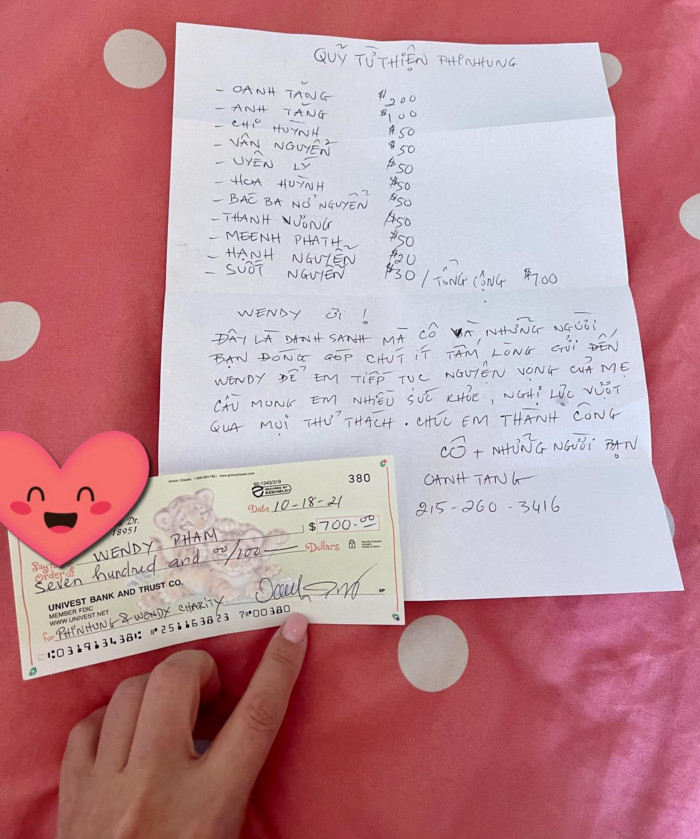 QUỸ TỪ THIỆN PHINHUNG
- OANH TĂNG $200
- ANH TĂNG $100
- CHI HUỲNH $50
- VÂN NGUYỄN $50
- UYÊN LÝ $50
- HOA HUỲNH $50
- BÁC BA NỞ NGUYỄN $50
- THANH VƯƠNG $50
- MEENH PHATH $50
- HẠNH NGUYỄN $20
- SUỐT NGUYỄN $30 / TỔNG CỘNG $700
WENDY ƠI !
ĐÂY LÀ DANH SANH MÀ CÔ VÀ NHỮNG NGƯỜI
BẠN ĐÓNG GÓP CHÚT ÍT TẤM LÒNG GỬI ĐẾN
WENDY ĐỂ EM TIẾP TỤC NGUYỆN VỌNG CỦA MẸ
CẦU MONG EM NHIỀU SỨC KHỎE, NGHỊ LỰC VƯỢT
QUA MỌI THỬ THÁCH. CHÚC EM THÀNH CÔNG
CÔ + NHỮNG NGƯỜI BẠN
OANH TANG
215-260-3416
380
Date 10-18-21
Dr.
18951
WENDY PHAM $ 700.00
Order of
seven hundred and 00/100 Dollars
UNIVEST BANK AND TRUST CO.
MEMBER FDIC
WWW.UNIVEST.NET
for PHINHUNG & WENDY CHARITY